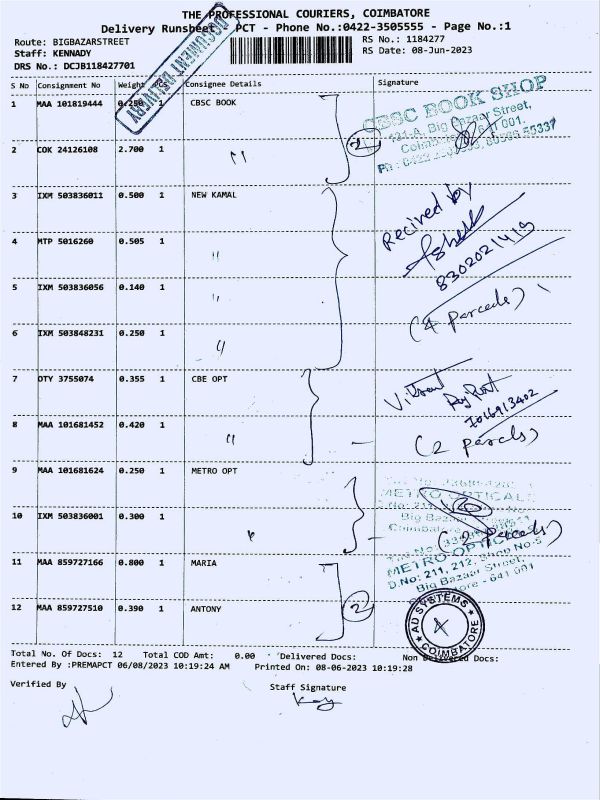 THE PROFESSIONAL COURIERS, COIMBATORE
Delivery Runsheet PCT - Phone No.:0422-3505555 - Page No.:1
Route: BIGBAZARSTREET
RS No.: 1184277
Staff: KENNADY
RS Date: 08-Jun-2023
DRS No.: DCJB118427701
DOCUMENT DELIVERY
S No Consignment No Weight Consignee Details Signature
1 MAA 101819444 0.250 1 CBSC BOOK
CBSC BOOK SHOP
131-A, Big Bazaar Street,
2 COK 24126108 2.700 1 "
2
3 IXM 503836011 0.500 1 NEW KAMAL
Recived by
4 MTP 5016260 0.505 1 "
8302021419
5 IXM 503836056 0.140 1 "
(4 Parceds)
6 IXM 503848231 0.250 1 "
7 OTY 3755074 0.355 1 CBE OPT
7016913402
8 MAA 101681452 0.420 1 "
(2 parcels)
9 MAA 101681624 0.250 1 METRO OPT
METRO OPTICALS
10 IXM 503836001 0.300 1 "
Big Bazaar
(2 parcels)
11 MAA 859727166 0.800 1 MARIA
METRO OPTICALS
D.No: 211, 212, Shop No-5
Big Bazaar Street,
12 MAA 859727510 0.390 1 ANTONY
2
AD SYSTEMS
COIMBATORE
Total No. Of Docs: 12 Total COD Amt: 0.00 Delivered Docs: Non Delivered Docs:
Entered By :PREMAPCT 06/08/2023 10:19:24 AM Printed On: 08-06-2023 10:19:28
Verified By
Staff Signature